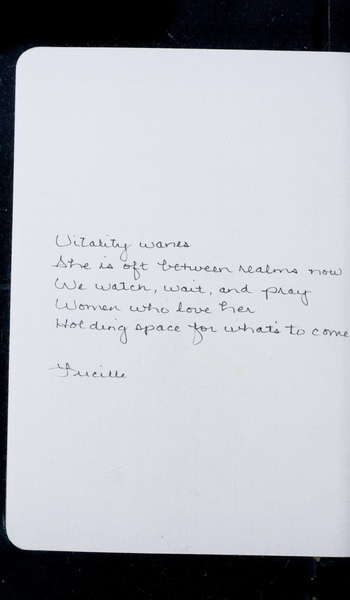 Vitality wanes
She is oft between realms now
We watch, wait, and pray
Women who love her
Holding space for what's to come
Lucille